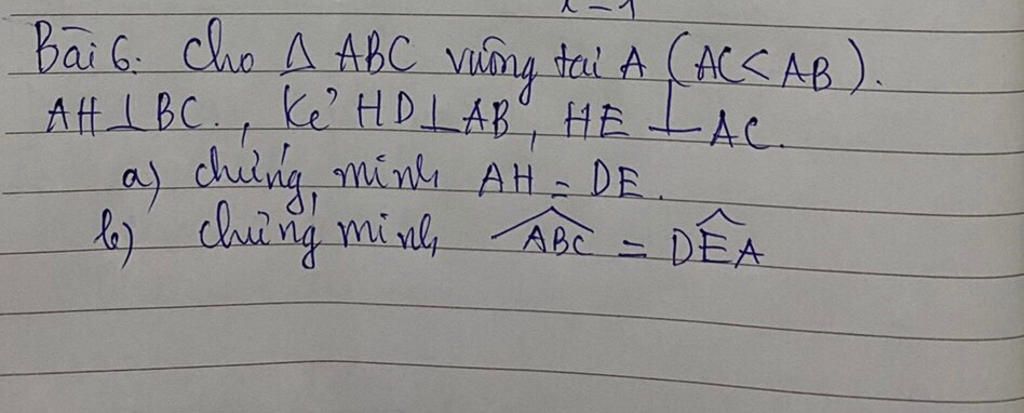 x-1
Bài 6: Cho Δ ABC vuông tại A (AC < AB).
AH ⊥ BC., Kẻ HD ⊥ AB, HE ⊥ AC.
a) chứng minh AH = DE.
b) chứng minh \widehat{ABC} = D\widehat{E}A